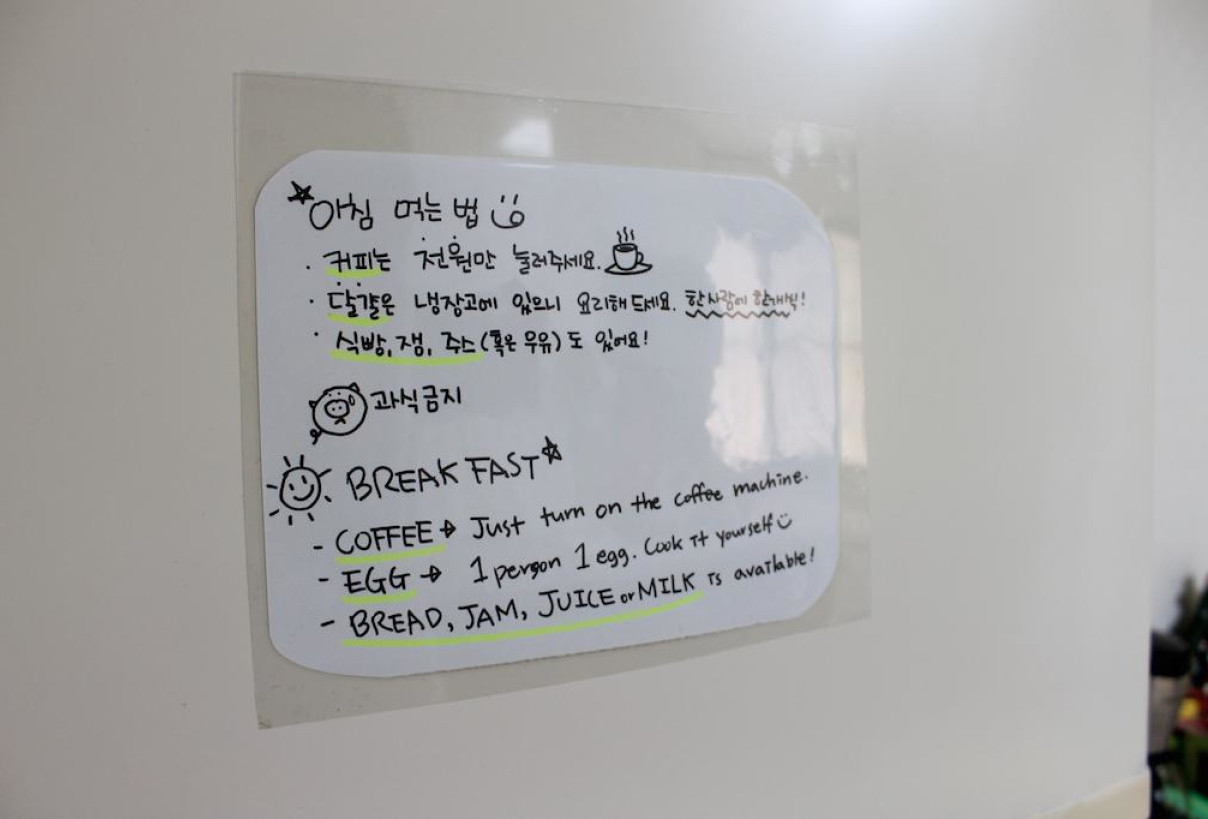 아침 먹는 법
· 커피는 전원만 눌러주세요.
· 달걀은 냉장고에 있으니 요리해 드세요. 한사람에 한개씩!
· 식빵, 잼, 주스(혹은 우유)도 있어요!
과식금지
BREAKFAST
- COFFEE → Just turn on the coffee machine.
- EGG → 1 person 1 egg. Cook it yourself
- BREAD, JAM, JUICE or MILK is available!